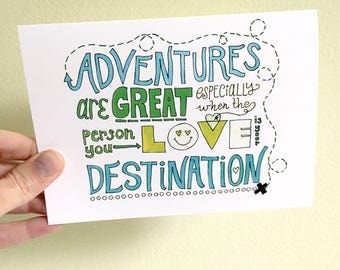 ADVENTURES
are GREAT especially when the
person you LOVE is your
DESTINATION